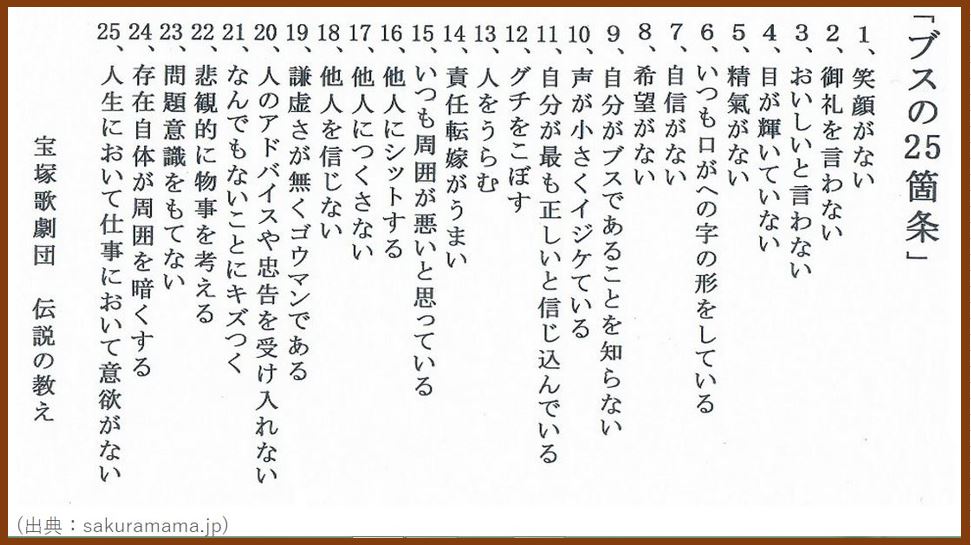 「ブスの25箇条」
1、笑顔がない
2、御礼を言わない
3、おいしいと言わない
4、目が輝いていない
5、精氣がない
6、いつも口がへの字の形をしている
7、自信がない
8、希望がない
9、自分がブスであることを知らない
10、声が小さくイジケている
11、自分が最も正しいと信じ込んでいる
12、グチをこぼす
13、人をうらむ
14、責任転嫁がうまい
15、いつも周囲が悪いと思っている
16、他人にシットする
17、他人につくさない
18、他人を信じない
19、謙虚さが無くゴウマンである
20、人のアドバイスや忠告を受け入れない
21、なんでもないことにキズつく
22、悲観的に物事を考える
23、問題意識をもてない
24、存在自体が周囲を暗くする
25、人生において仕事において意欲がない
宝塚歌劇団　伝説の教え
（出典：sakuramama.jp）